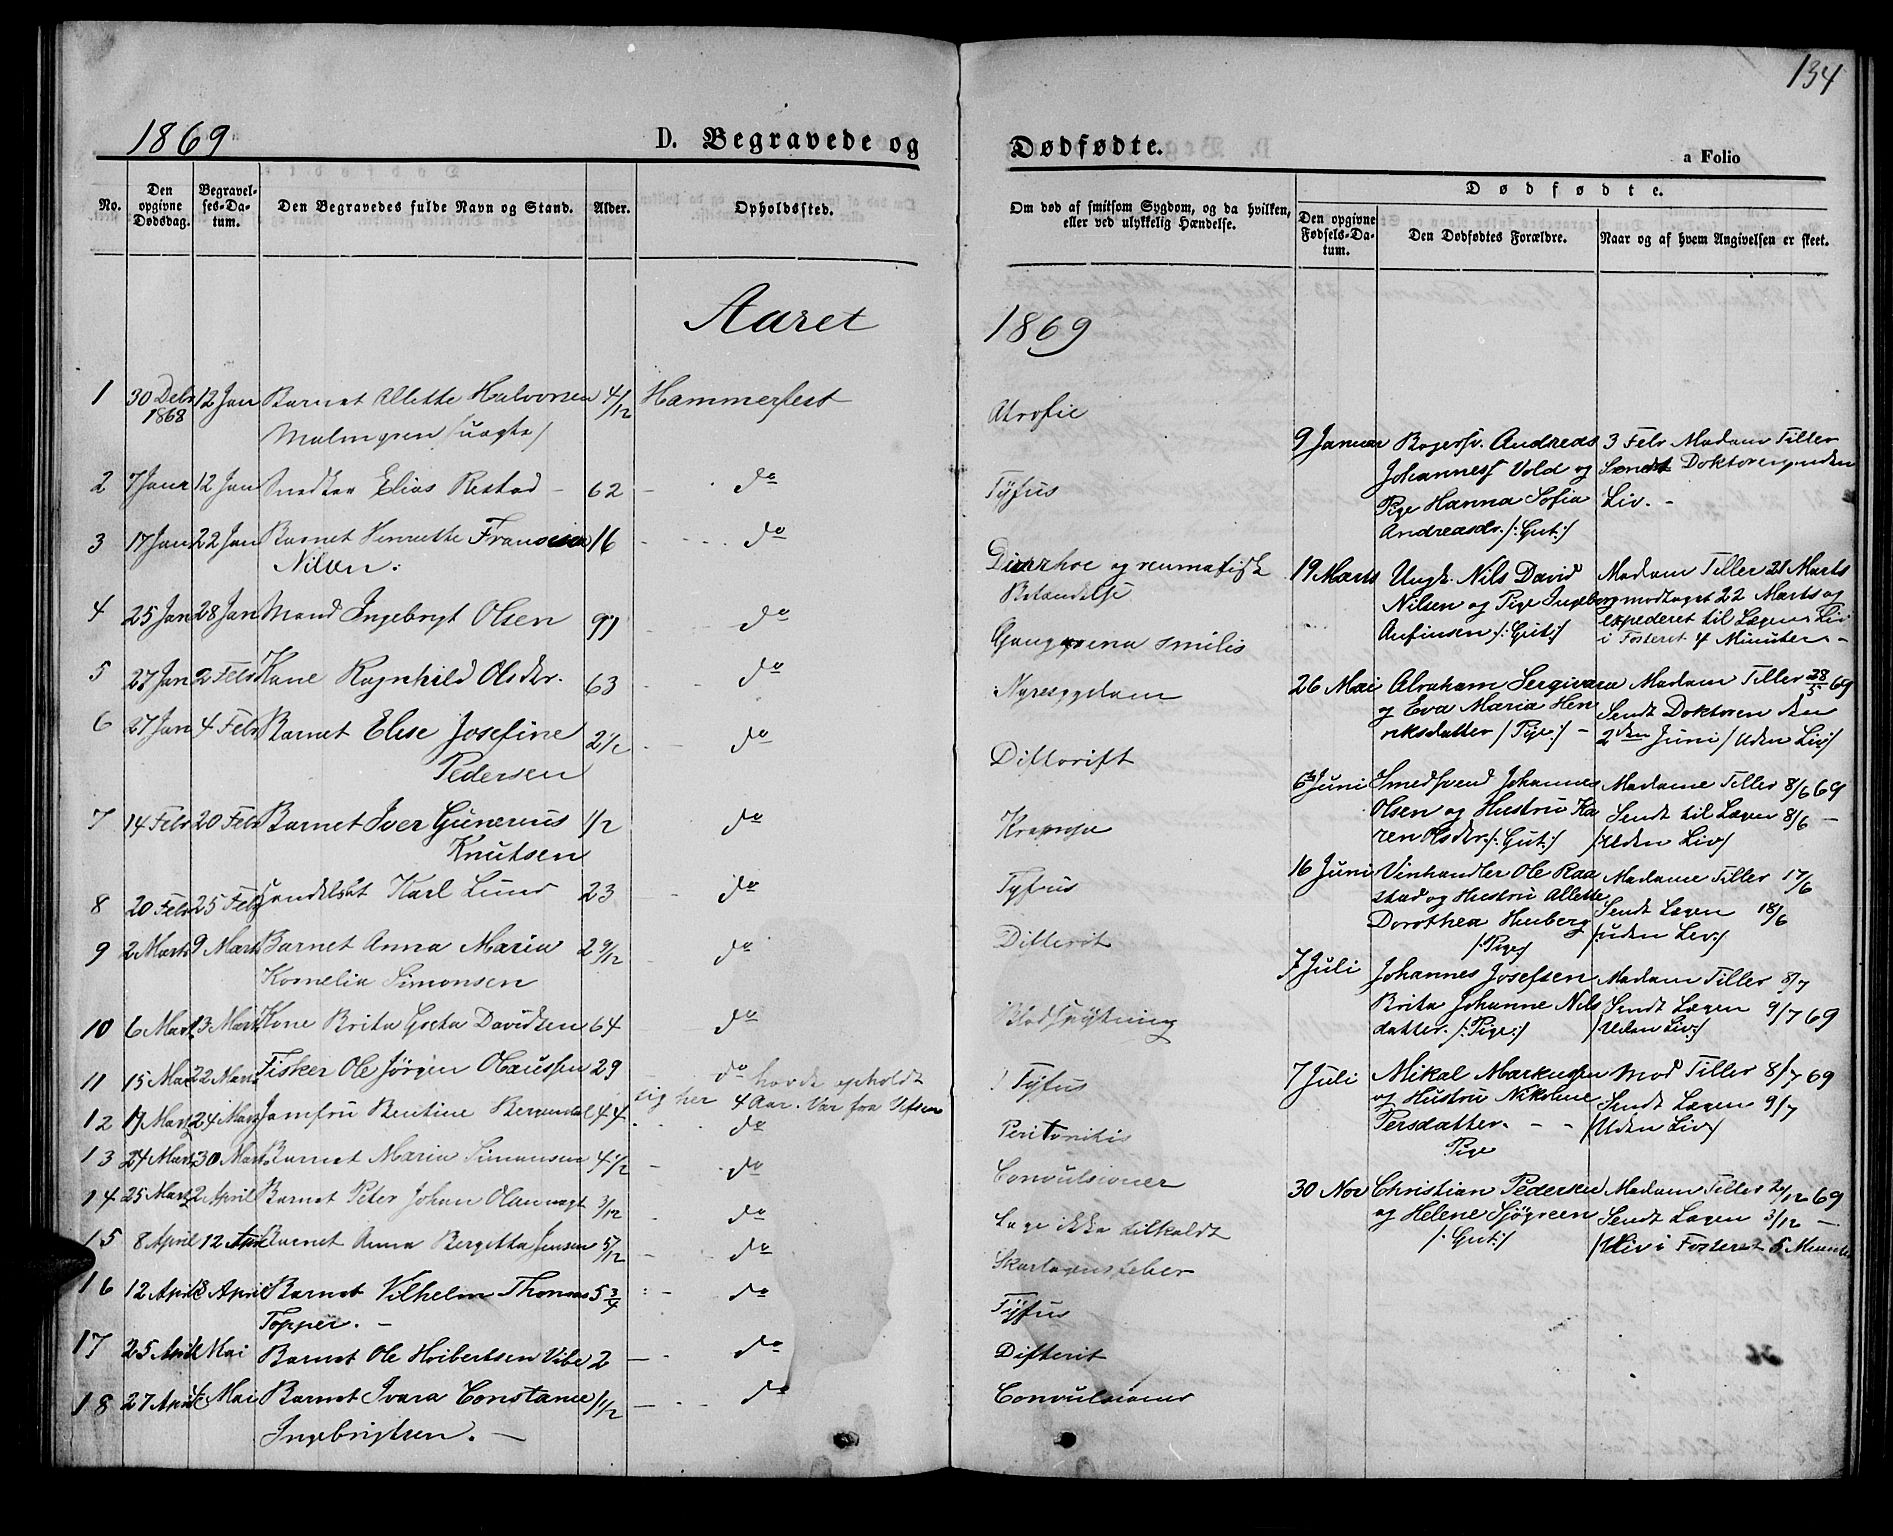 134
1869
D. Begravede og Dødfødte.
a Folio
No.
Den opgivne Dødsdag.
Begravelses-Datum.
Den Begravedes fulde Navn og Stand.
Alder.
Opholdssted.
Om død af smitsom Sygdom, og da hvilken, eller ved ulykkelig Hændelse.
Dødfødte.
Den opgivne Fødsels-Datum.
Den Dødfødtes Forældre.
Naar og af hvem Angivelsen er skeet.
Aaret 1869
1 30 Debr 1868 12 Jan Barnet Allette Halvorsen 4/12 Hammerfest Atrofie
Malmgren /uægte/
2 7 Janr 12 Jan Snedker Elias Restad - 62 - do Tÿfus
3 17 Jan 22 Jan Barnet Henriette 16 - do Diarrhoe og reumatisk
Nilsen. Betændelse
4 25 Jan 28 Jan Mand Ingebrigt Olsen do Gangræna senilis
5 27 Jan 2 Febr Kone Ragnhild Olsdtr. 63 do Nyresygdom
6 27 Jan 4 Febr Barnet Elise Josefine 2 1/2 do
Pedersen
7 14 Febr 20 Febr Barnet Iver Gunerius 1/2 do
Knutsen
8 20 Febr 25 Febr Karl Lund 23 - do Tyfus
9 2 Marts 9 Marts Barnet Anna Maria 2 9/12 do Difterit
Kornelia Simonsen
10 6 Marts 13 Marts Kone Brita Greta Davidsen 64 do Blodspytning
11 15 Mar 22 Marts Fisker Ole Jörgen Olaussen 29 do havde opholdt Tÿfus
sig her 4 Aar. Var fra
12 19 Marts 24 Marts Jomfru Bentine 44 do Peritonitis
13 24 Marts 30 Marts Barnet Maria Simonsen 4 1/2 - do Convulsioner
14 25 Marts 2 April Barnet Peter Johan 3/12 do Læge ikke tilkaldt
15 8 April 12 April Barnet Anna Bergitta Jensen 5/12 - do Skarlagensfeber
16 12 April 18 April Barnet Vilhelm Thomas 5 3/4 - do Tÿfus
Topper. -
17 25 April Mai Barnet Ole Hoibertsen Vibe 2 - do Difterit
18 27 April 4 Mai Barnet Ivara Constance 1/12 - do Convulsioner
Ingebrigtsen. -
9 Januar Andreas 3 Febr Madam Tiller
Johannes Vold og Sendt Doktoren
Pige Hanna Sofia Liv. -
Andreasdr. /: Gut :/
19 Marts Ungk. Nils David Madam Tiller 21 Marts
Nilsen og Pige Ingeborg modtaget 22 Marts og
Anfinsen /: Gut :/ expederet til Lægen Liv
i Fosteret 4 Minuter -
26 Mai Abraham Madam Tiller 28/5 69
og Eva Maria Hen Sendt Doktoren den
riksdatter / Pige :/ - 2den Juni / Uden Liv /
6 Juni Smedsvend Johannes Madame Tiller 8/6 69
Olsen og Hustru Ka Sendt til Lægen 8/6 -
ren Olsdtr. /: Gut :/ /: Uden Liv /
16 Juni Vinhandler Ole Raa Madame Tiller 17/6
stad og Hustru Allette Sendt Lægen 18/6
Dorothea Huberg /: uden Liv :/
/: Pige /
7 Juli Johannes Josefsen Madam Tiller 8/7
Brita Johanne Nils Sendt Lægen 9/7 69
datter. /: Pige :/ / Uden Liv :/
7 Juli Mikal Markussen Mad Tiller 8/7 69
og Hustru Nikoline Sendt Lægen 9/7
Persdatter. - - / Uden Liv /
Pige
30 Nov Christian Pedersen Madam Tiller 2/12 69
og Helene Sjögreen Sendt Lægen 3/12 -
/: Gut :/ / Liv i Fosteret 5 Minuter